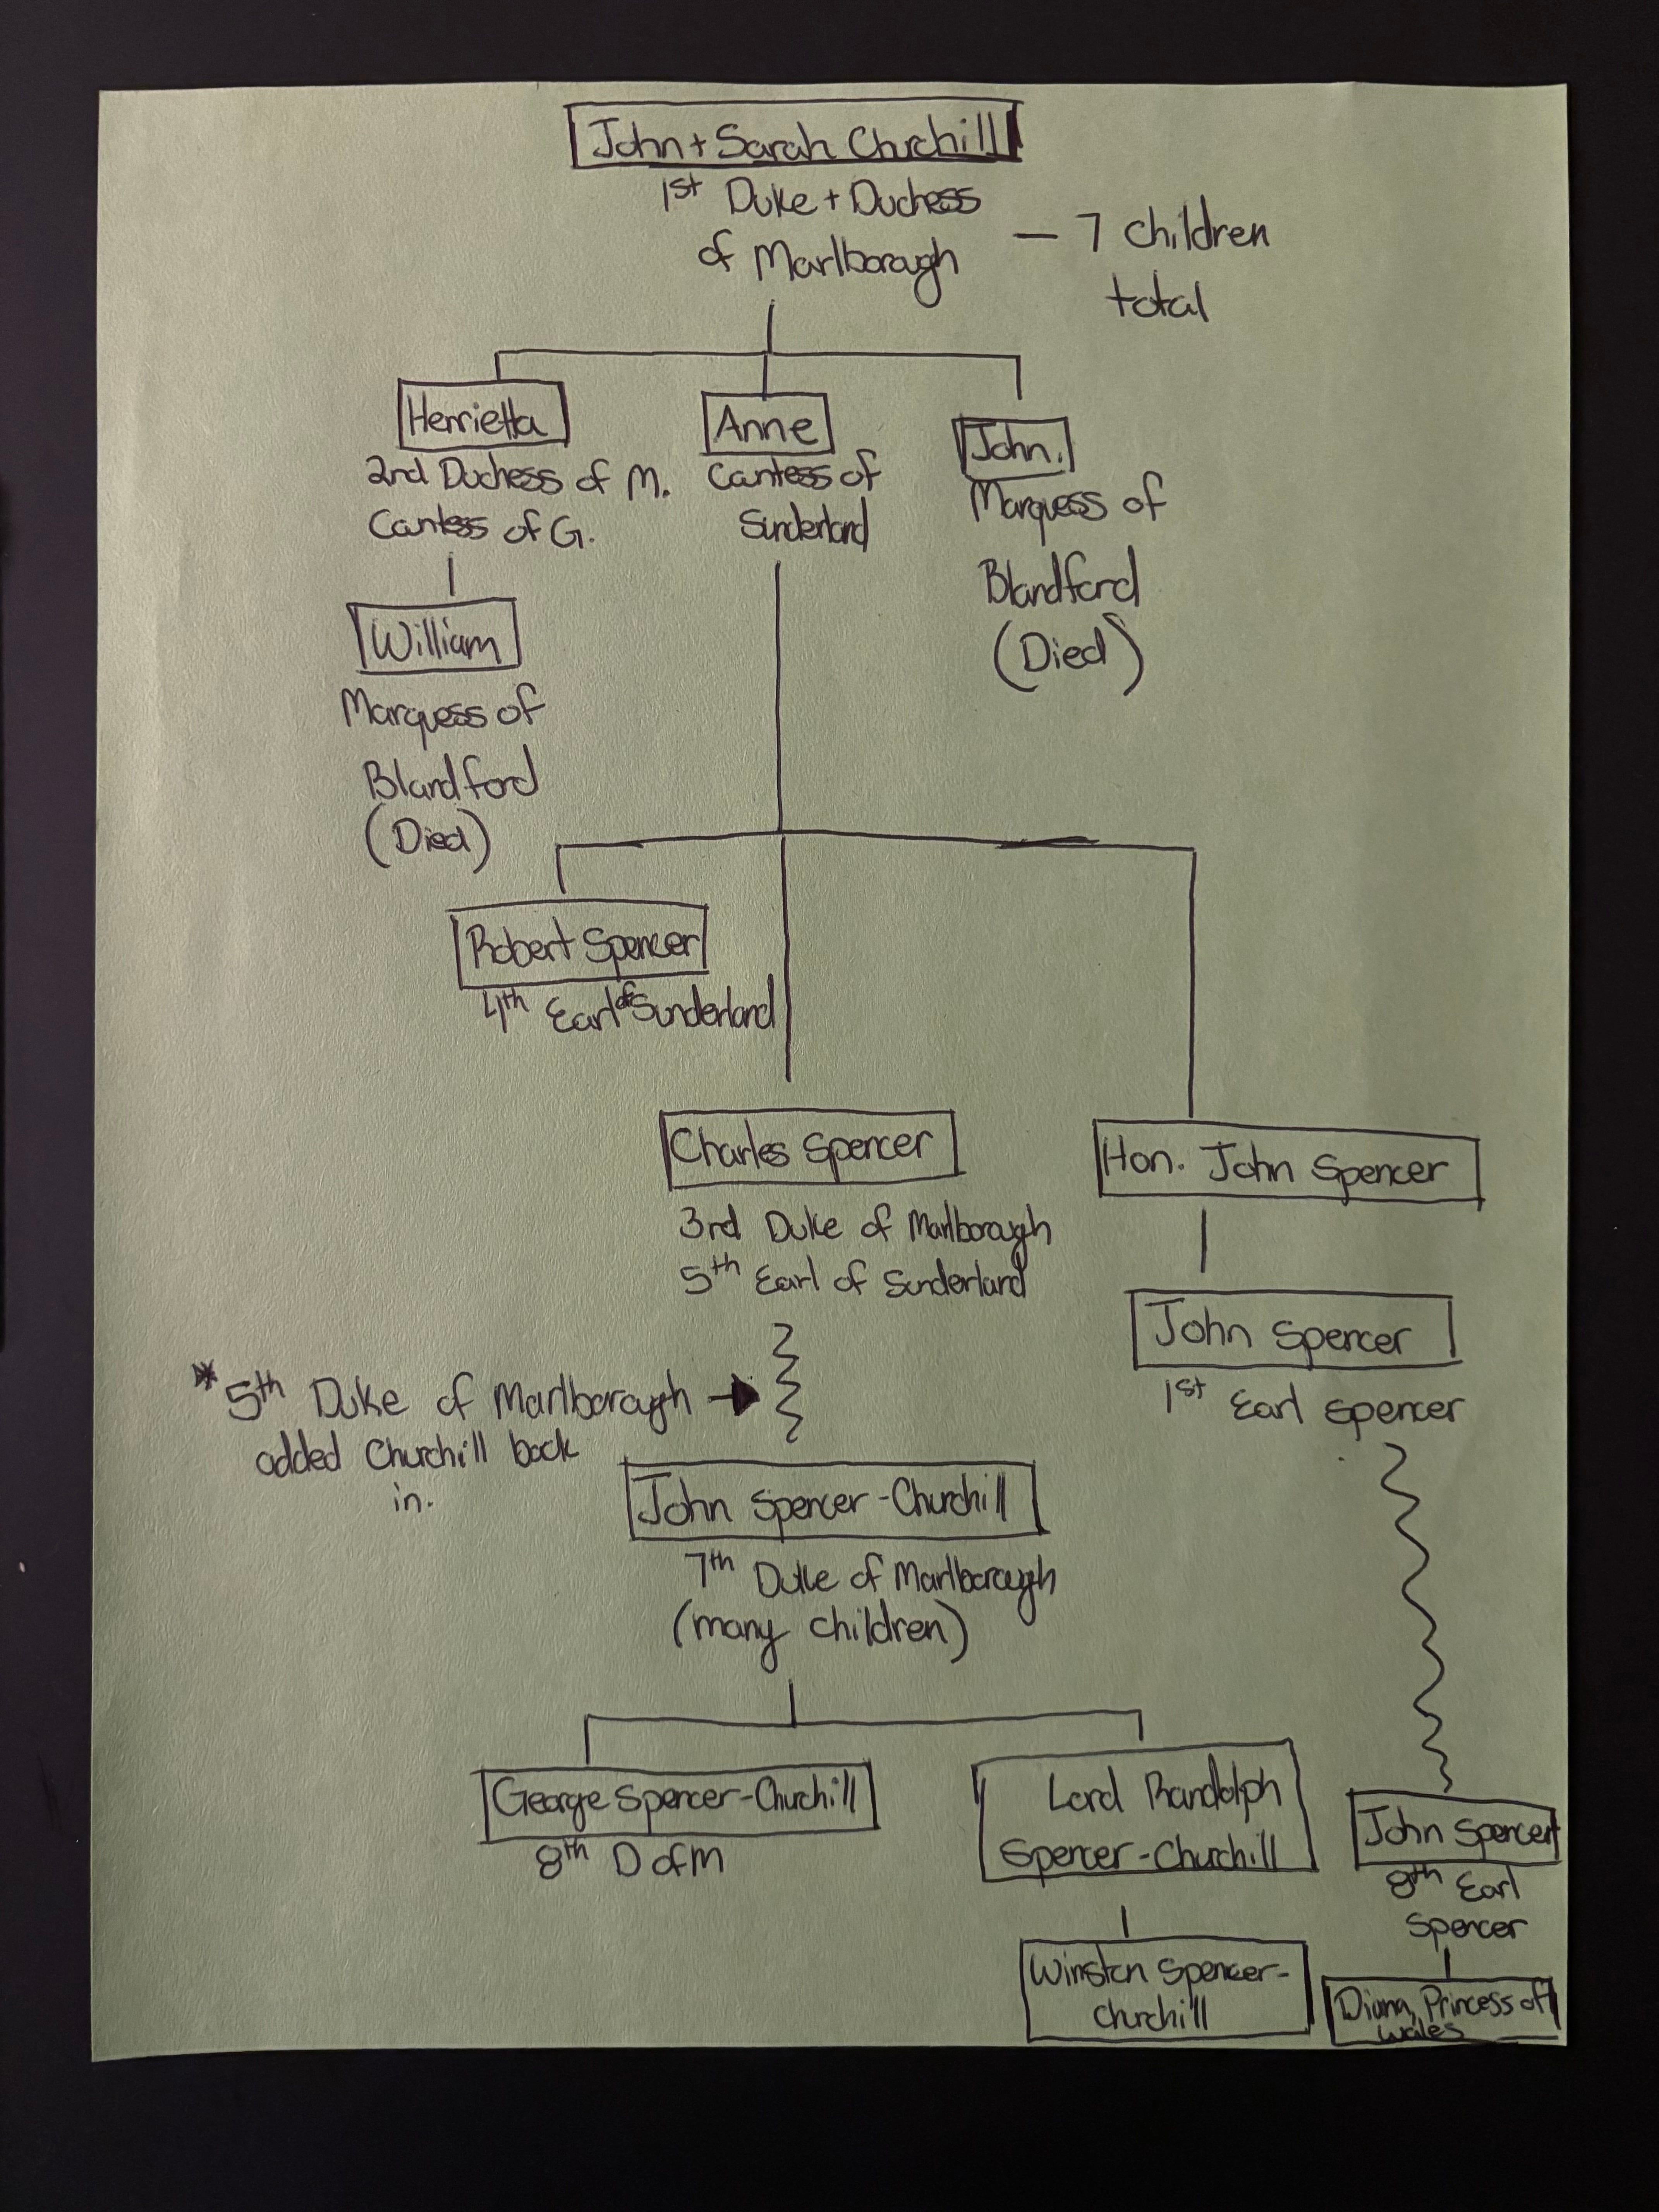 John + Sarah Churchill
1st Duke + Duchess
of Marlborough
— 7 children
total
Henrietta
2nd Duchess of M.
Contess of G.
Anne
Contess of
Sunderland
John.
Marquess of
Blandford
(Died)
William
Marquess of
Blandford
(Died)
Robert Spencer
4th Earl of Sunderland
Charles Spencer
3rd Duke of Marlborough
5th Earl of Sunderland
Hon. John Spencer
John Spencer
1st Earl Spencer
* 5th Duke of Marlborough →
added Churchill back
in.
John Spencer-Churchill
7th Duke of Marlborough
(many children)
George Spencer-Churchill
8th D of M
Lord Randolph
Spencer-Churchill
John Spencer
8th Earl
Spencer
Winston Spencer-
Churchill
Diana, Princess of
Wales